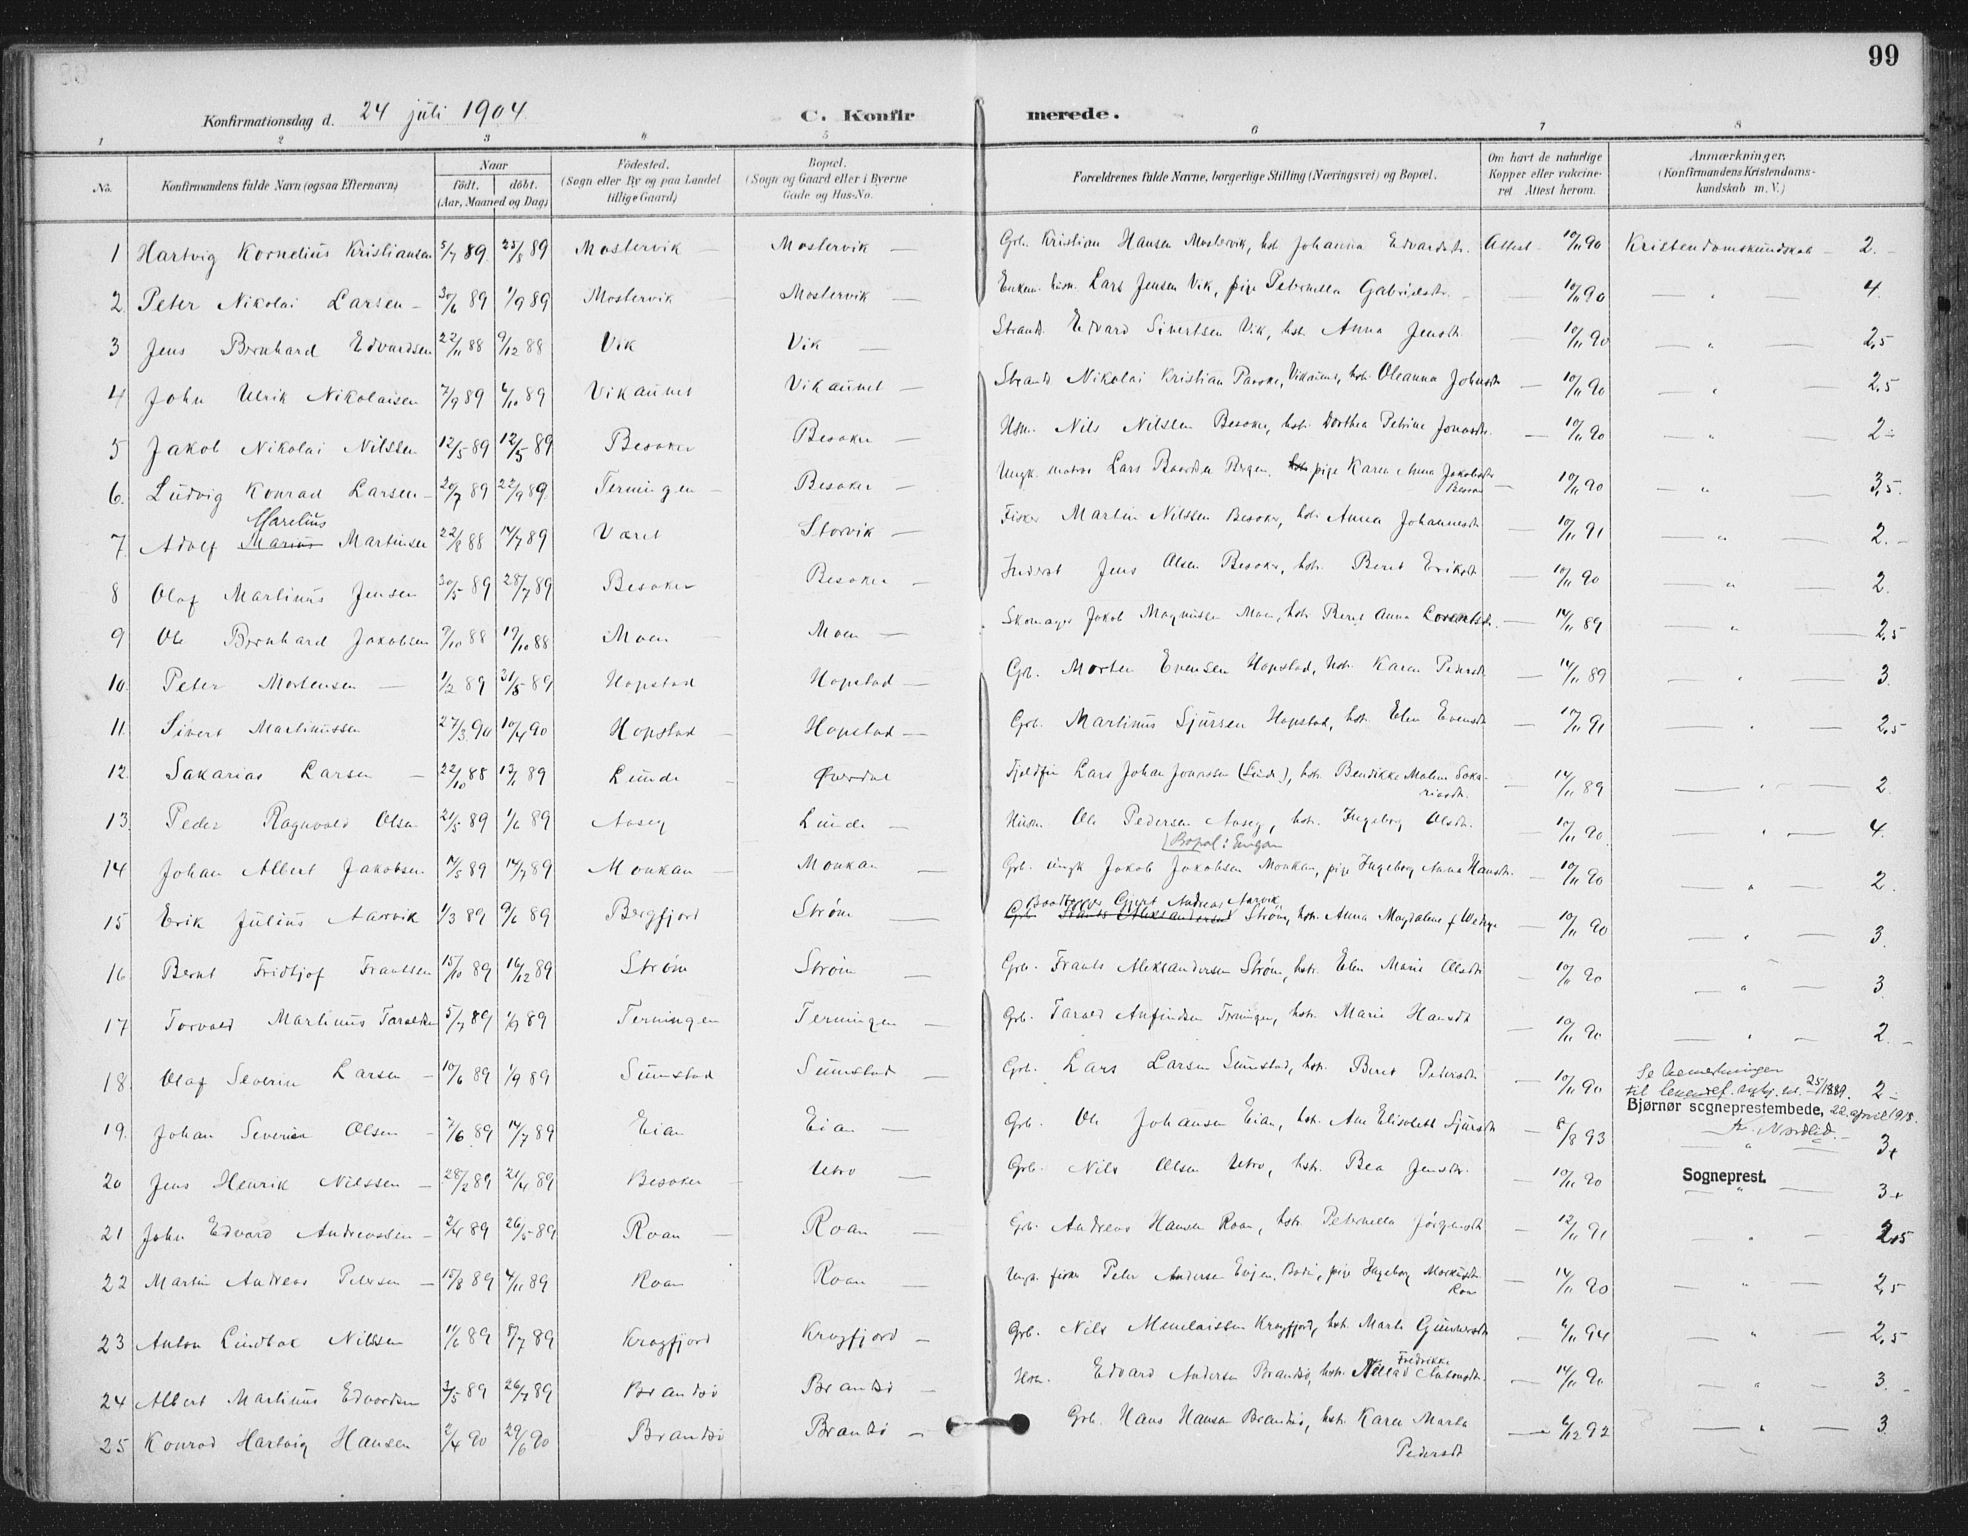 99
Konfirmationsdag d. 24 juli 1904
C. Konfirmerede.
1 2 3 4 5 6 7 8
No. Konfirmandens fulde Navn (ogsaa Efternavn) Naar födt. döbt. (Aar, Maaned og Dag) Födested. (Sogn eller By og paa Landet tillige Gaard) Bopæl. (Sogn og Gaard eller i Byerne Gade og Hus-No. Forældrenes fulde Navne, borgerlige Stilling (Næringsvei) og Bopæl. Om havt de naturlige Kopper eller vakcineret Attest herom. Anmærkninger. (Konfirmandens Kristendomskundskab m. V.)
1 Hartvig Kornelius Kristiansen 5/7 89 25/8 89 Mostervik — Mostervik — Grb. Kristian Hansen Mostervik, hst. Johanna Edvardsdtr. Attest 10/11 90 Kristendomskundskab — 2.
2 Peter Nikolai Larsen — 30/6 89 1/9 89 Mostervik — Mostervik — Enkem. husm. Lars Jensen Vik, pige Peternella Gabrielsdtr. — 10/11 90 — " — 4.
3 Jens Bernhard Edvardsen 22/11 88 9/12 88 Vik Vik — Strands. Edvard Sivertsen Vik, hst. Anna Jensdtr. — 10/11 90 — " — 2,5
4 John Ulrik Nikolaisen 2/9 89 6/10 89 Vikaunet Vikaunet — Strands. Nikolai Kristian Vikaunet, hst. Oleanna Johnsdtr. — 10/11 90 — " — 2,5
5 Jakob Nikolai Nilssen 12/5 89 12/5 89 Besaker Besaker — Hsm. Nils Nilssen Besaker, hst. Dorthea Petrine Jonasdtr. — 10/11 90 — " — 2 -
6. Ludvig Konrad Larsen — 20/7 89 22/9 89. Terningen — Besaker — Ungk. matros Lars Baardsen Bergen. hst. pige Karen Anna Jakobsdtr Besaker — 10/11 90 — " — 3,5.
Marelius
7 Adolf Marius Martinsen 22/8 88 14/7 89 Været Storvik — Fisker Martin Nilssen Besaker, hst. Anna Johannesdtr. — 10/11 91 — " — 2. -
8 Olaf Martinus Jensen 30/5 89 28/7 89 Besaker Besaker — Inderst Jens Olsen Besaker, hst. Beret Eriksdtr — 10/11 90 — " — 2.
9 Ole Bernhard Jakobsen 9/10 88 19/10 88 Moen — Moen — Skomager Jakob Magnussen Moen, hst. Beret Anna Lorentsdtr. — 14/11 89 — " — 2,5
10. Peter Mortensen — 1/2 89 31/5 89 Hopstad Hopstad — Grb. Morten Evensen Hopstad, hst. Karen Pedersdtr — 14/11 89 — " — 3.
11. Sivert Martinussen 27/3 90 10/4 90 Hopstad — Hopstad — Grb. Martinus Sjursen Hopstad, hst. Elen Evensdtr — 10/11 91 — " — 2,5
12. Sakarias Larsen — 22/10 88 13/1 89 Lunde — Øverdal Lars Johan Jonassen (Lunde), hst. Bendikke Malene Sakariasdtr. — 14/11 89 — " — 2.
13. Peder Ragnvald Olsen 21/5 89 1/6 89 Aaseg Lunde — Husm. Ole Pedersen Aaseg, hst. Ingeborg Olsdtr. — 10/11 90. — " — 4.
14 Johan Albert Jakobsen 7/5 89 14/7 89 Monkan — Monkan — Grb. ungk. Jakob Jakobsen Monkan, pige Ingeborg Anna Hansdtr. — 10/11 90 — " — 2.
15 Erik Julius Aarvik 1/3 89 9/6 89 Bergfjord Strøm — Gjert Andreas Aarvik, Strøm, hst. Anna Magdalene f. — 10/11 90 — " — 3.
16 Bernt Fridtjof Frantssen 15/10 89 16/12 89 Strøm Strøm — Grb. Frants Aleksandersen Strøm, hst. Elen Marie Olsdtr — 10/11 90 — " — 3
17 Torvald Martinus Taraldsen 5/7 89 1/9 89 Terningen Terningen — Grb. Tarald Anfindsen Terningen, hst. Marie Hansdtr — 10/11 90 — " — 2. -
18. Olaf Severin Larsen — 10/6 89 1/9 89 Sumstad Sumstad — Grb. Lars Larsen Sumstad, hst. Beret Pedersdtr — 10/11 90 Se bemerkningen 2 -
Bjørnør sogneprestembede, 22 april 1918.
Kr. Nordlid.
Sogneprest.
19. Johan Severin Olsen — 2/6 89 14/7 89 Eian Eian — Grb. Ole Johansen Eian, hst. Ane Elisabeth Sjursdtr — 8/8 93 — " — 3+
20 Jens Henrik Nilssen — 28/2 89 21/4 89 Besaker — Utro — Grb. Nils Olsen Utro, hst. Bea Jensdtr. — 10/11 90 — " — 3+
21 John Edvard Andreassen — 2/4 89 26/5 89 Roan — Roan — Grb. Andreas Hansen Roan, hst. Peternella Jörgensdtr — 12/11 91 — " — 2,5
22 Martin Andreas Petersen — 15/8 89 4/11 89 Roan Roan — Ungk. fisker Peter Andersen Evjen, Bodø, pige Ingeborg Markusdtr Roan — 14/11 90 — " — 2,5
23 Anton Lindbak Nilssen 11/6 89 5/7 89 Kragfjord Kragfjord — Grb. Nils Menelaissen Kragfjord, hst. Marta Gunnersdtr — 6/11 94 — " — 2,5
24 Albert Martinus Edvardsen 3/5 89 26/7 89 Brandsø Brandsø — Hsm. Edvard Andersen Brandsø, hst. Fredrikke Antonsdtr. — 14/11 90 — " — 3. -
25 Konrad Hartvig Hansen 2/4 90 29/6 90 Brandsø Brandsø — Grb. Hans Hansen Brandsø, hst. Karen Marta Pedersdtr — 6/12 92 — " — 3.